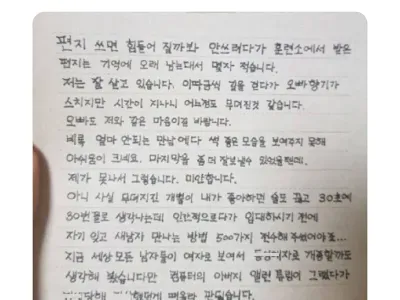 편지 쓰면 힘들어 질까봐 안쓰려다가 훈련소에서 받은
편지는 기억에 오래 남는대서 몇자 적습니다.
저는 잘 살고 있습니다. 이따금씩 길을 걷다가 오빠향기가
스치지만 시간이 지나니 어느정도 무뎌진것 같습니다.
오빠도 저와 같은 마음이길 바랍니다.
비록 얼마 안되는 만남에다 썩 좋은 모습을 보여주지 못해
아쉬움이 크네요. 마지막을 좀 더 잘보낼수 있었을텐데.
제가 못나서 그렇습니다. 미안합니다.
아니 사실 무뎌지긴 개뿔이 내가 좋아하던 술도 끊고 30초에
80번꼴로 생각나는데 인간적으로다가 입대하시기 전에
자기 잊고 새남자 만나는 방법 500가지 전수해 주셨어야죠...
지금 세상 모든 남자들이 여자로 보여서 동성애자로 개종할까도
생각해 봤습니다만 컴퓨터의 아버지 앨런 튜링이 그랬다가